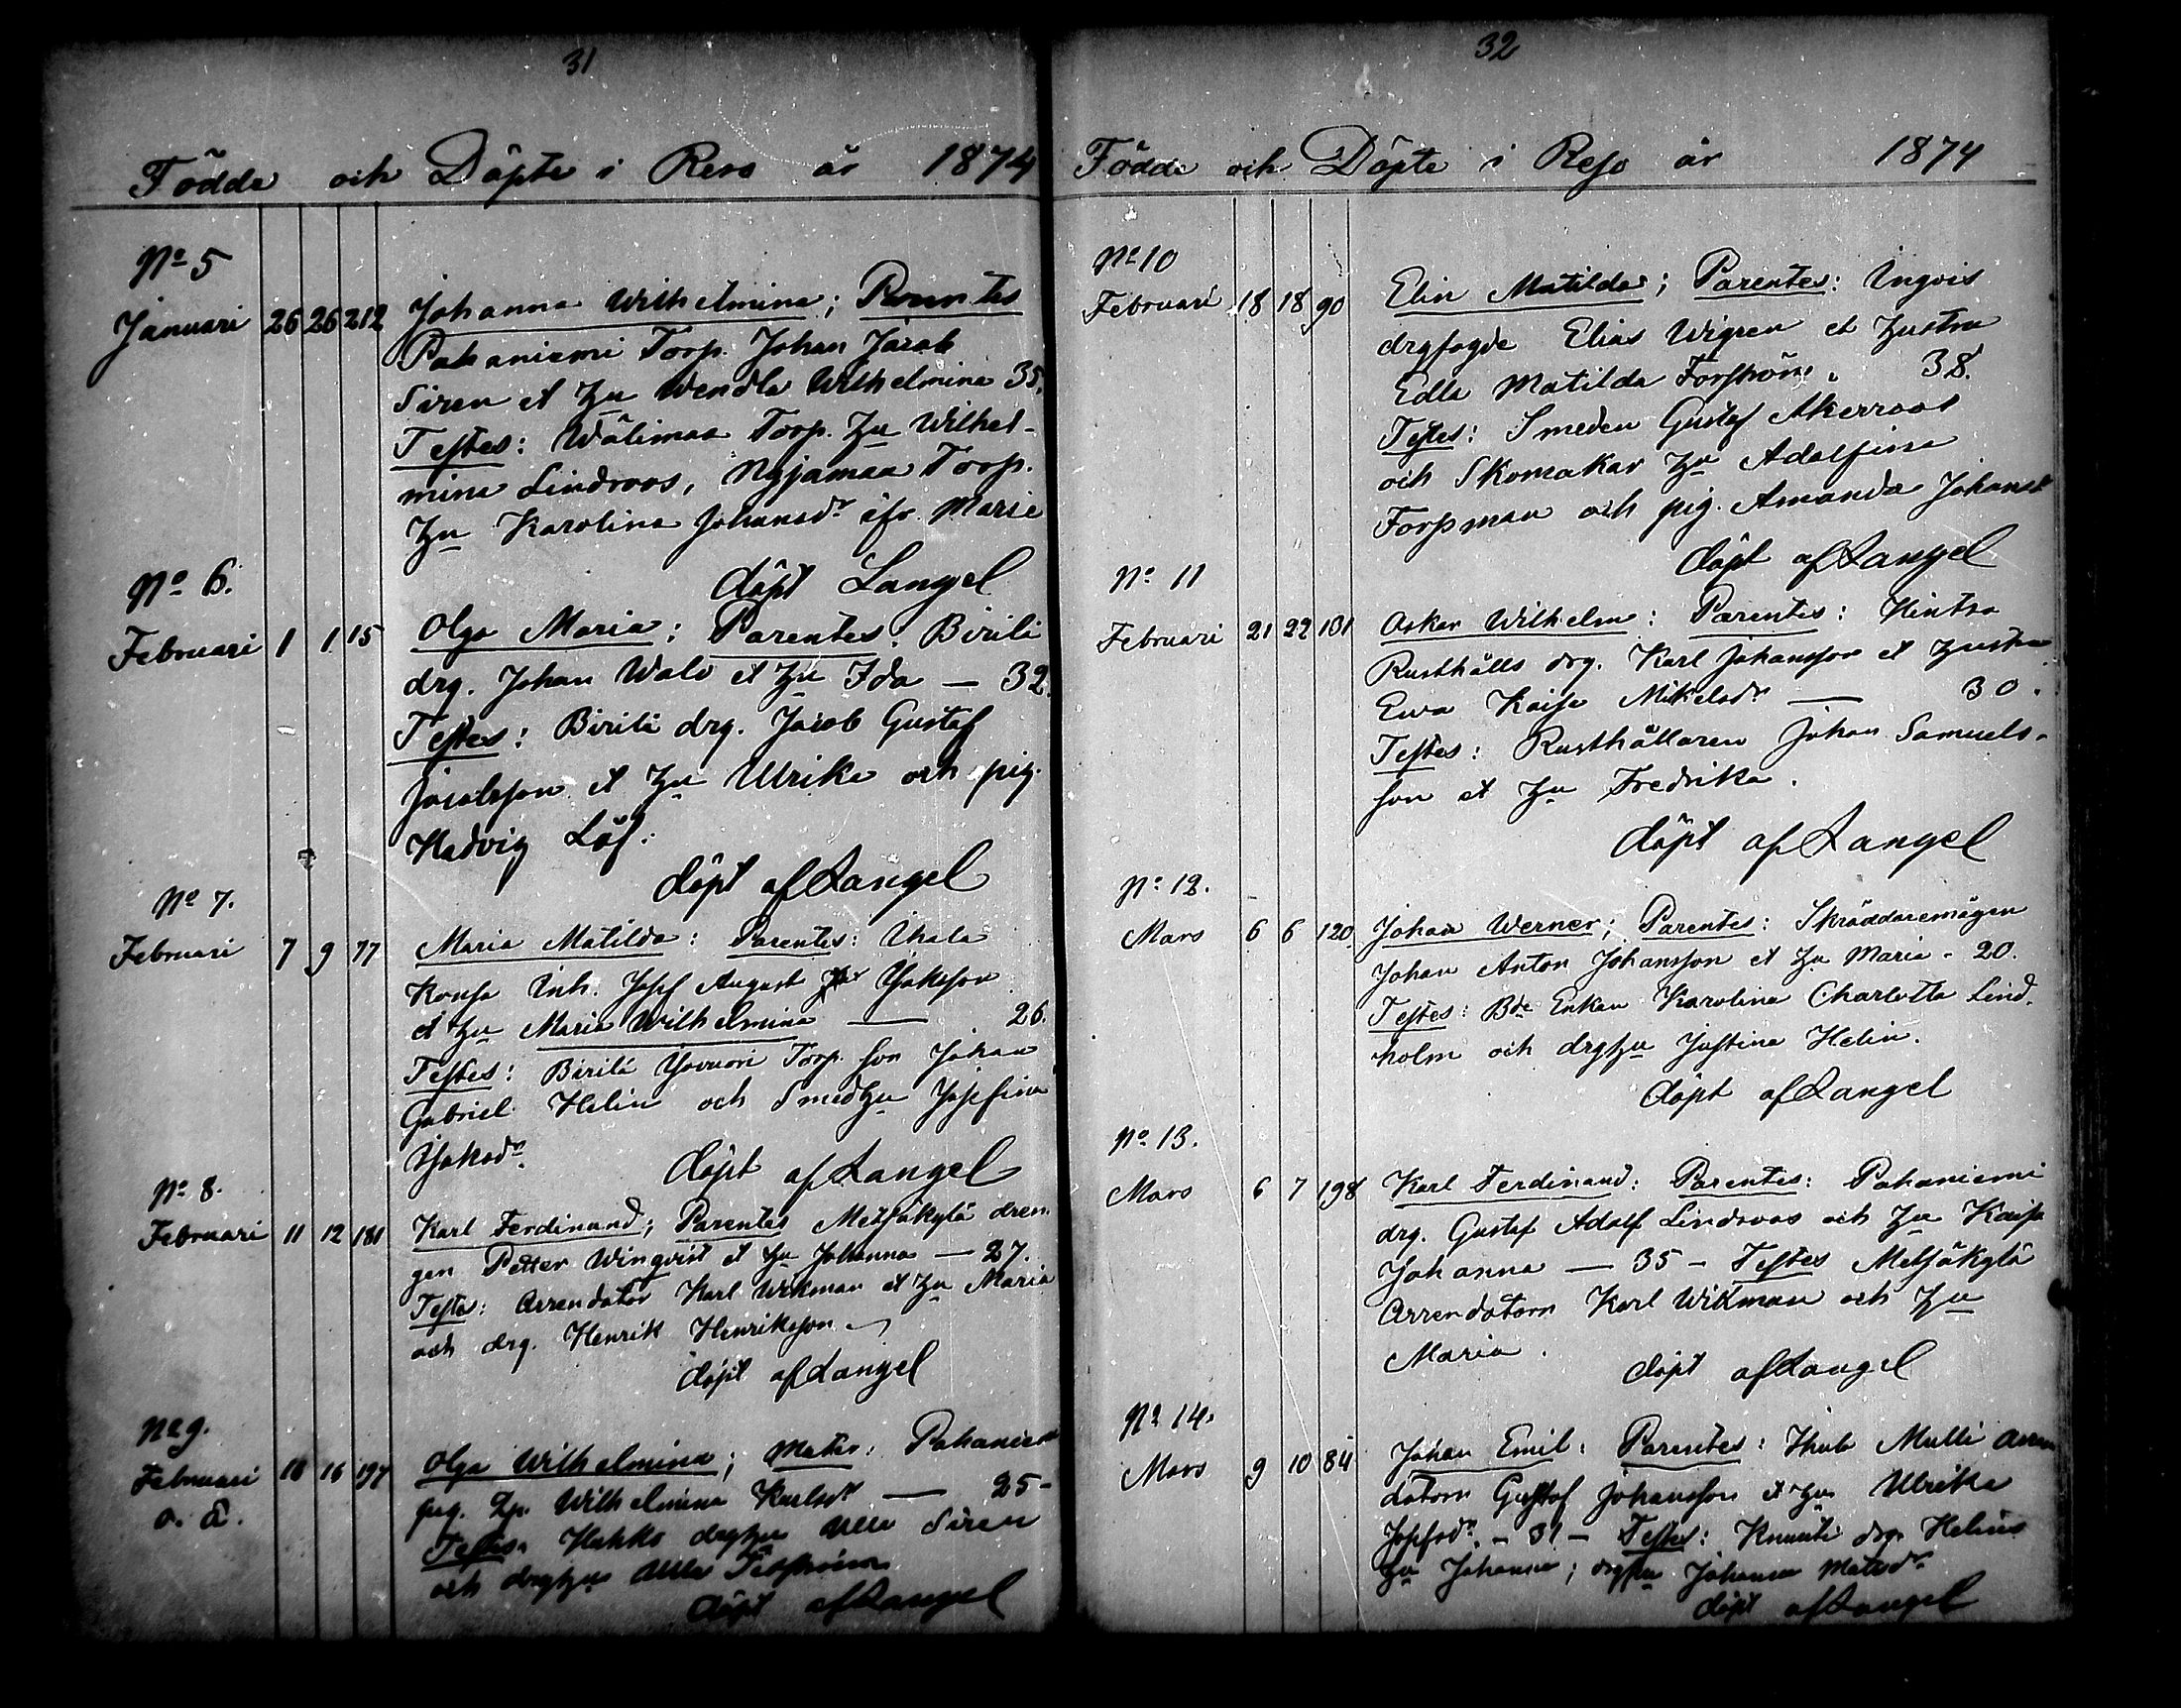 31
Födde och Döpte i Reso år 1874
No 5
Januari 26 26 212 Johanna Wilhelmina; Parentes
Pahaniemi Torp. Johan Jacob
Siren et hu Wendla Wilhelmina 35.
Testes: Wälimaa Torp. hu Wilhel-
mina Lindroos, Nyjamaa Torp.
hu Karolina Johansdr
döpt Langel
No 6.
Februari 1 1 15 Olga Maria: Parentes. Birilä
drg. Johan Walo et hu Ida — 32.
Testes: Birilä drg. Jacob Gustaf
Jacobsson et hu Ulrika och pig.
Hedvig Löf:
döpt af Langel
No 7.
Februari 7 9 77 Maria Matilda: Parentes: Ihala
Konsa Inh. Josef August Isaksson
et hu Maria Wilhelmina — 26.
Testes: Birilä Torp. son Johan
Gabriel Helin och Smedhu Josefina
Isaksdr.
döpt af Langel
No 8.
Februari 11 12 181 Karl Ferdinand; Parentes Metsäkylä dren
gen Petter Winqvist et hu Johanna — 27.
Teste: Arrendator Karl Wikman et hu Maria
och drg. Henrik Henriksson
döpt af Langel
No 9.
Februari 16 16 197 Olga Wilhelmina; Mater: Pahaniemi
o. ä. pig. Lp. Wilhelmina Karlsdr — 25-
Testes. Hakko drghu Ulla Siren
och drghu Ulla
döpt af Langel
32
Födde och Döpte i Reso år 1874
No 10
Februari 18 18 90 Elin Matilda; Parentes: Ingois
drgfogde Elias Wigren et hustru
Edla Matilda Forsström. 38.
Testes: Smeden Gustaf Akerroos
och Skomakar hu Adolfina
Forssman och pig. Amanda Johansdr
döpt af Langel
No 11
Februari 21 22 131 Oskar Wilhelm: Parentes: Hintsa
Rusthålls drg. Karl Johansson et hustru
Ewa Kaisa Mikelsdr — 30.
Testes: Rusthållaren Johan Samuels-
son et hu Fredrika.
döpt af Langel
No 12.
Mars 6 6 120 Johan Werner; Parentes: Skräddaremågen
Johan Anton Johansson et hu Maria - 20.
Testes: Bde Enkan Karolina Charlotta Lind-
holm och drghu Justina Helin.
döpt af Langel
No 13.
Mars 6 7 198 Karl Ferdinand: Parentes: Pahaniemi
drg. Gustaf Adolf Lindroos och hu Kaisa
Johanna — 35 - Testes Metsäkylä
Arrendatorn Karl Wikman och hu
Maria.
döpt af Langel
No 14.
Mars 9 10 84 Johan Emil: Parentes: Mulli arren
datorn Gustaf Johansson et hu Ulrika
Josefsdr. - 31 - Testes: Knuuti drg. Helins
hu Johanna; drghu Johanna Matsdr
döpt af Langel